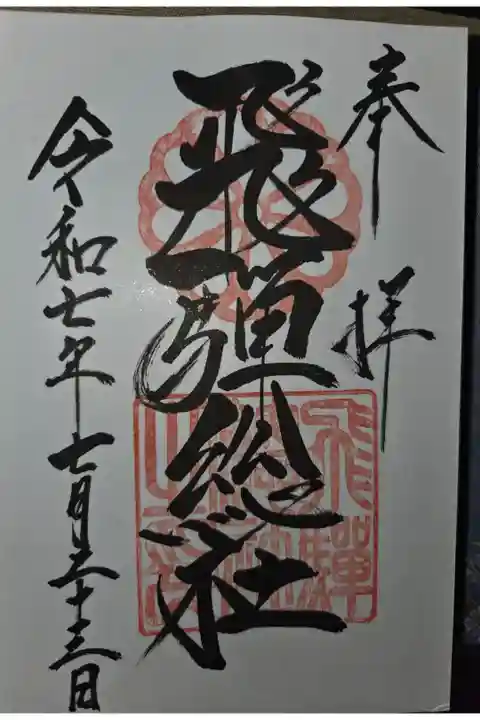 奉拝
飛騨総社
令和七年七月二十三日